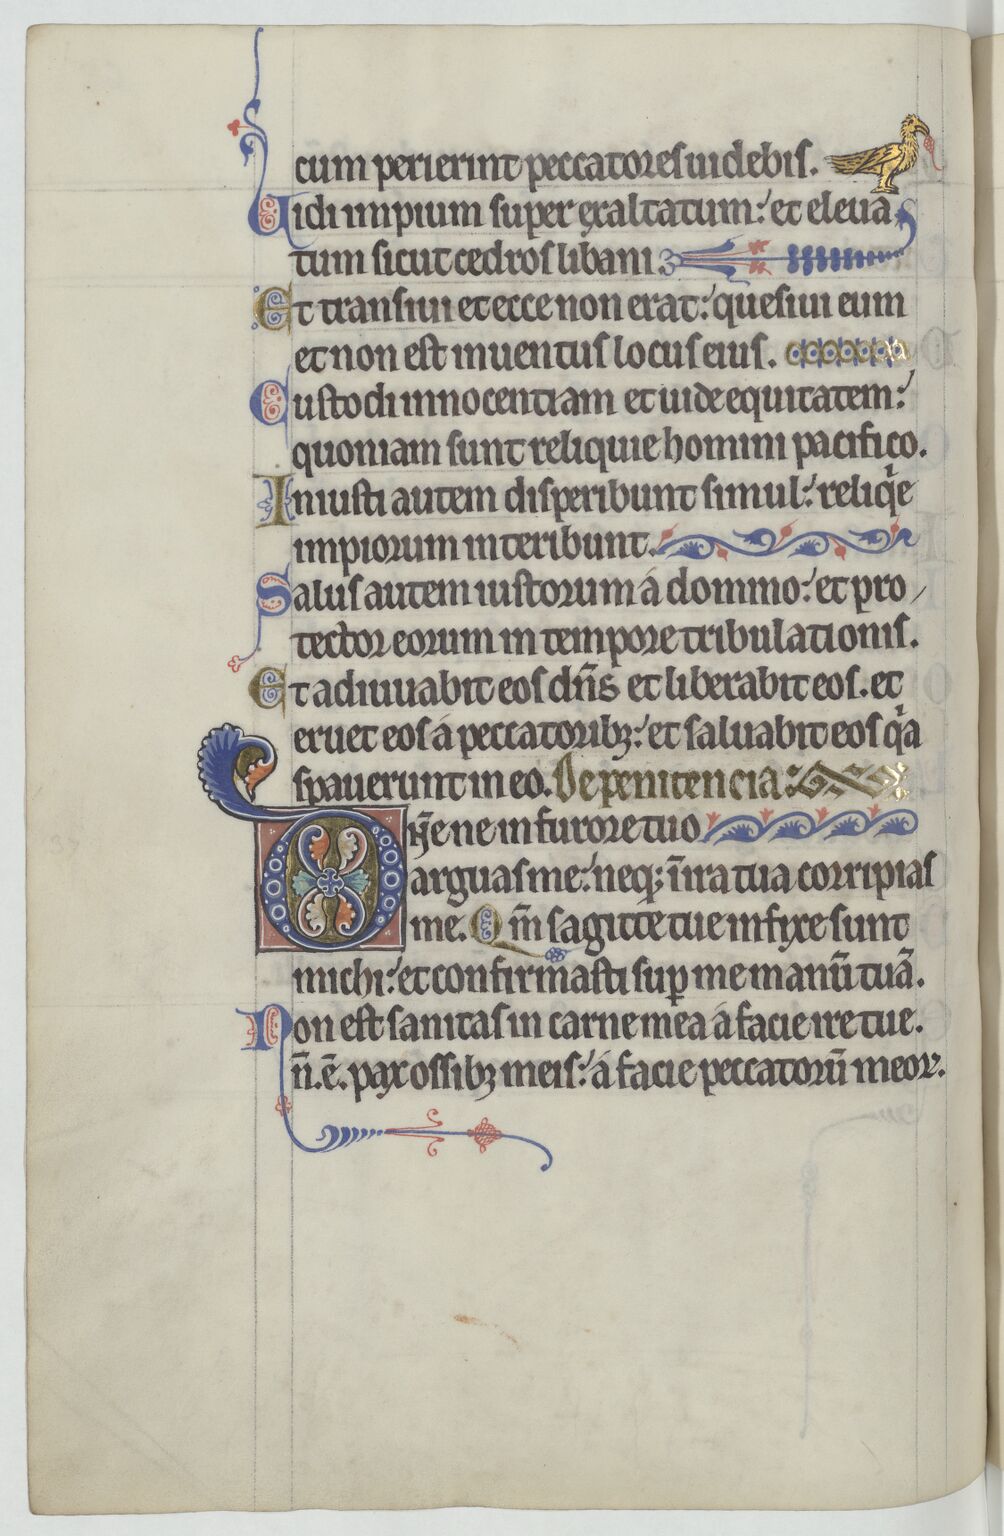 cum perierint peccatores uidebis.
Uidi impium super exaltatum: et eleua
tum sicut cedros libani
Et transiui et ecce non erat: quesiui eum
et non est inuentus locus eius.
Custodi innocentiam et uide equitatem:
quoniam sunt reliquie homini pacifico.
Iniusti autem disperibunt simul: reliqͥe
impiorum interibunt.
Salus autem iustorum á domino: et pro
tector eorum in tempore tribulationis.
Et adiuuabit eos dn̄s et liberabit eos. et
eruet eos á peccatoribꝫ: et saluabit eos qͥa
spauerunt in eo. De penitencia:
Dn̄e ne in furore tuo
arguas me: neqꝫ in̄ ira tua corripias
me. Qm̄ sagitte tue infixe sunt
michi: et confirmasti suꝑ me manū tuā.
Non est sanitas in carne mea á facie ire tue.
n̄. ē. pax ossibꝫ meis: á facie peccatorū meoꝝ.